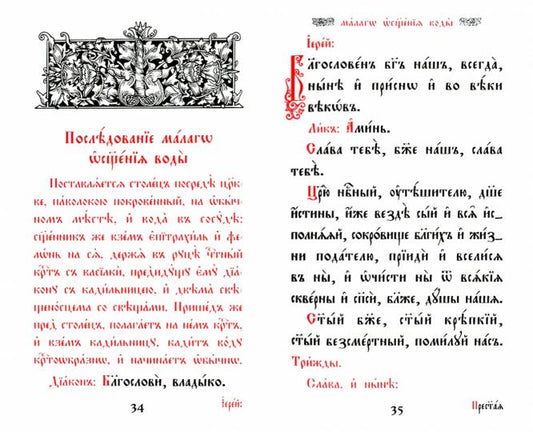 Послѣ́дованїе ма́лагѡ
ѡ҆сщ҃е́нїѧ воды̀
Поставлѧ́етсѧ столе́цъ посредѣ̀ цр҃к-
ве, паволо́кою покрове́нный, на ѡ҆бы́ч-
номъ мѣ́стѣ, и҆ вода̀ въ сосꙋ́дѣ:
сщ҃е́нникъ же взе́мъ є҆пїтрахи́ль и҆ фе-
лѡ́нь на сѧ̀, держа̀ въ рꙋцѣ̀ чⷭ҇тны́й
крⷭ҇тъ съ васїлкѝ, предидꙋ́щꙋ є҆мꙋ̀ дїа́-
конꙋ съ кади́льницею, и҆ двѣма̀ свѣ-
щено́сцема со свѣща́ми. Прише́дъ же
пред̾ столе́цъ, полага́етъ на не́мъ крⷭ҇тъ,
и҆ взе́мъ кади́льницꙋ, кади́тъ во́дꙋ
крⷭ҇тоѡбра́знѡ, и҆ начина́етъ ѡ҆бы́чнѡ.
Дїа́конъ: Благословѝ, влады́ко.
34
І҆ере́й:
ма́лагѡ ѡ҆сщ҃е́нїѧ воды̀
І҆ере́й:
Благослове́нъ бг҃ъ на́шъ, всегда̀,
ны́нѣ и҆ при́снѡ и҆ во вѣ́ки
вѣкѡ́въ.
Ли́къ: А҆ми́нь.
Сла́ва тебѣ̀, бж҃е на́шъ, сла́ва
тебѣ̀.
Цр҃ю̀ нбⷭ҇ный, ᲂу҆тѣ́шителю, дш҃е
и҆́стины, и҆́же вездѣ̀ сы́й и҆ всѧ̑ и҆с_
полнѧ́ѧй, сокро́вище бл҃ги́хъ и҆ жи́з_
ни пода́телю, прїидѝ и҆ всели́сѧ
въ ны̀, и҆ ѡ҆чи́сти ны̀ ѿ всѧ́кїѧ
скве́рны и҆ сп҃сѝ, бл҃же, дꙋ́шы на́шѧ.
Ст҃ы́й бж҃е, ст҃ы́й крѣ́пкїй,
ст҃ы́й безсме́ртный, поми́лꙋй на́съ.
Три́жды.
Сла́ва, и҆ ны́нѣ:
35
Прест҃а́ѧ